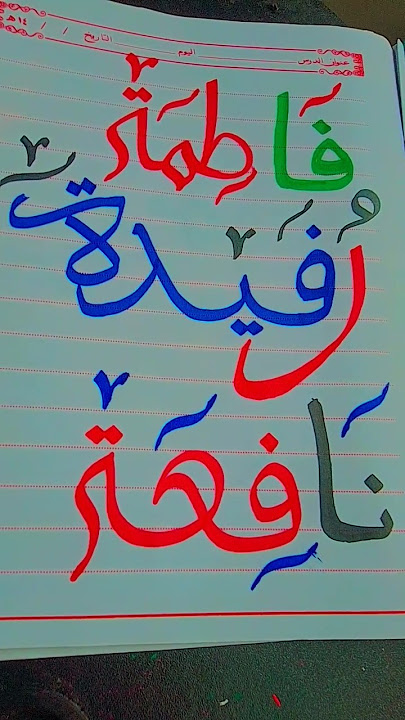 عنوان الدرس اليوم التاريخ / / ١٤هـ
فَاطِمَة
رُفَيدَة
نَافِعَة